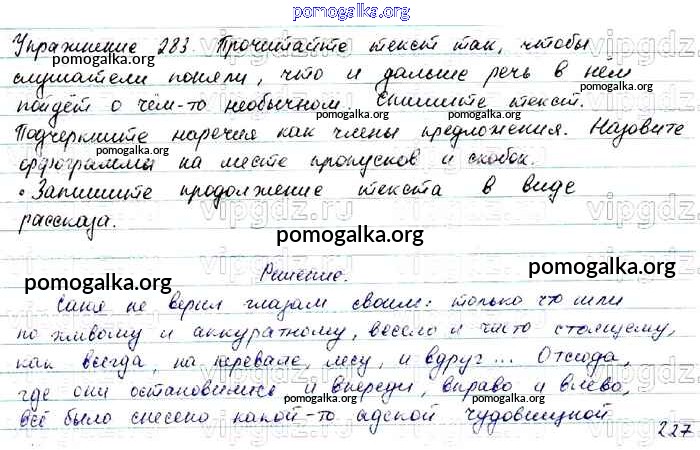 pomogalka.org
Упражнение 283. Прочитайте текст так, чтобы
слушатели поняли, что и дальше речь в нём
пойдёт о чём-то необычном. Спишите текст.
Подчеркните наречия как члены предложения. Назовите
орфограммы на месте пропусков и скобок.
• Запишите продолжение текста в виде
рассказа.
pomogalka.org
Решение.
pomogalka.org
pomogalka.org
Саня не верил глазам своим: только что шли
по живому и аккуратному, весело и чисто стоящему,
как всегда, на перевале, лесу, и вдруг... Отсюда,
где они остановились и впереди, вправо и влево,
всё было снесено какой-то адской чудовищной
227